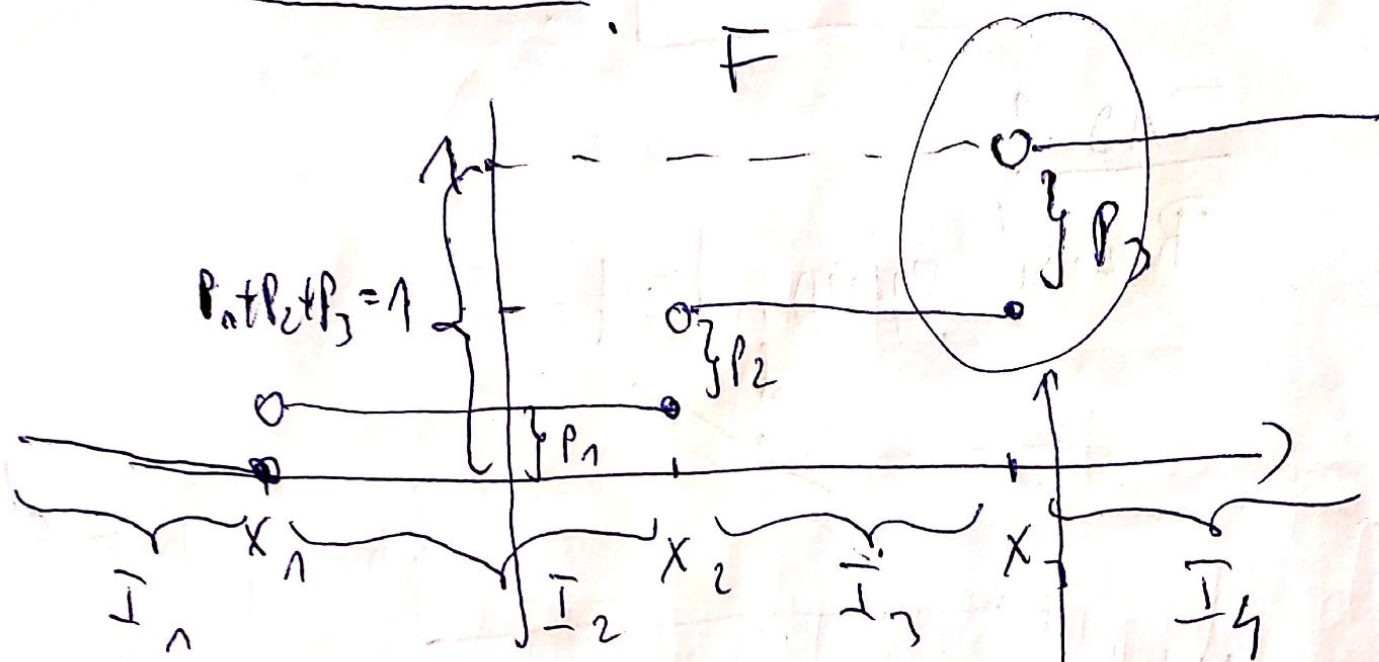 F
1
P₁+P₂+P₃=1
P₃
P₂
P₁
X₁ X₂ X
I₁ I₂ I₃ I₄